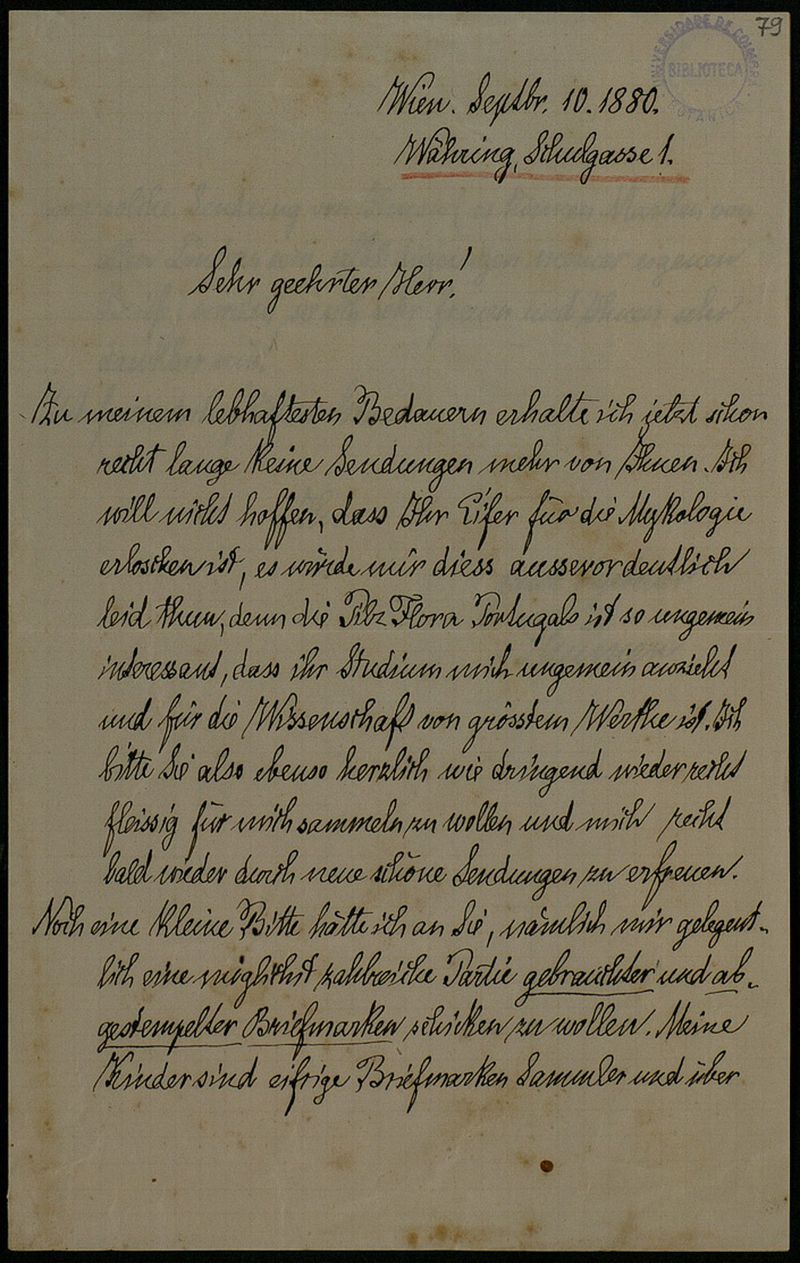 79
UNIVERSIDADE DE COIMBRA
BIBLIOTECA
BOTANICA
Wien. Septbr. 10. 1880.
Währing, Schulgasse 1.
Sehr geehrter Herr!
Zu meinem lebhaftesten Bedauern erhalte ich jetzt schon
recht lange keine Sendungen mehr von Ihnen. Ich
will nicht hoffen, dass Ihr Eifer für die Mykologie
erloschen ist, es würde mir diess ausserordentlich
leid thun, denn die Pilz Flora Portugals ist so ungemein
interessant, dass ihr Studium mich ungemein anzieht
und für die Wissenschaft von grösstem Werthe ist. Ich
bitte Sie also ebenso herzlich wie dringend wieder recht
fleissig für mich sammeln zu wollen und mich recht
bald wieder durch neue schöne Sendungen zu erfreuen.
Noch eine kleine Bitte hätte ich an Sie, nämlich mir gelegent-
lich eine möglichst zahlreiche Partie gebrauchter und ab-
gestempelter Briefmarken schicken zu wollen. Meine
Kinder sind eifrige Briefmarken Sammler und über